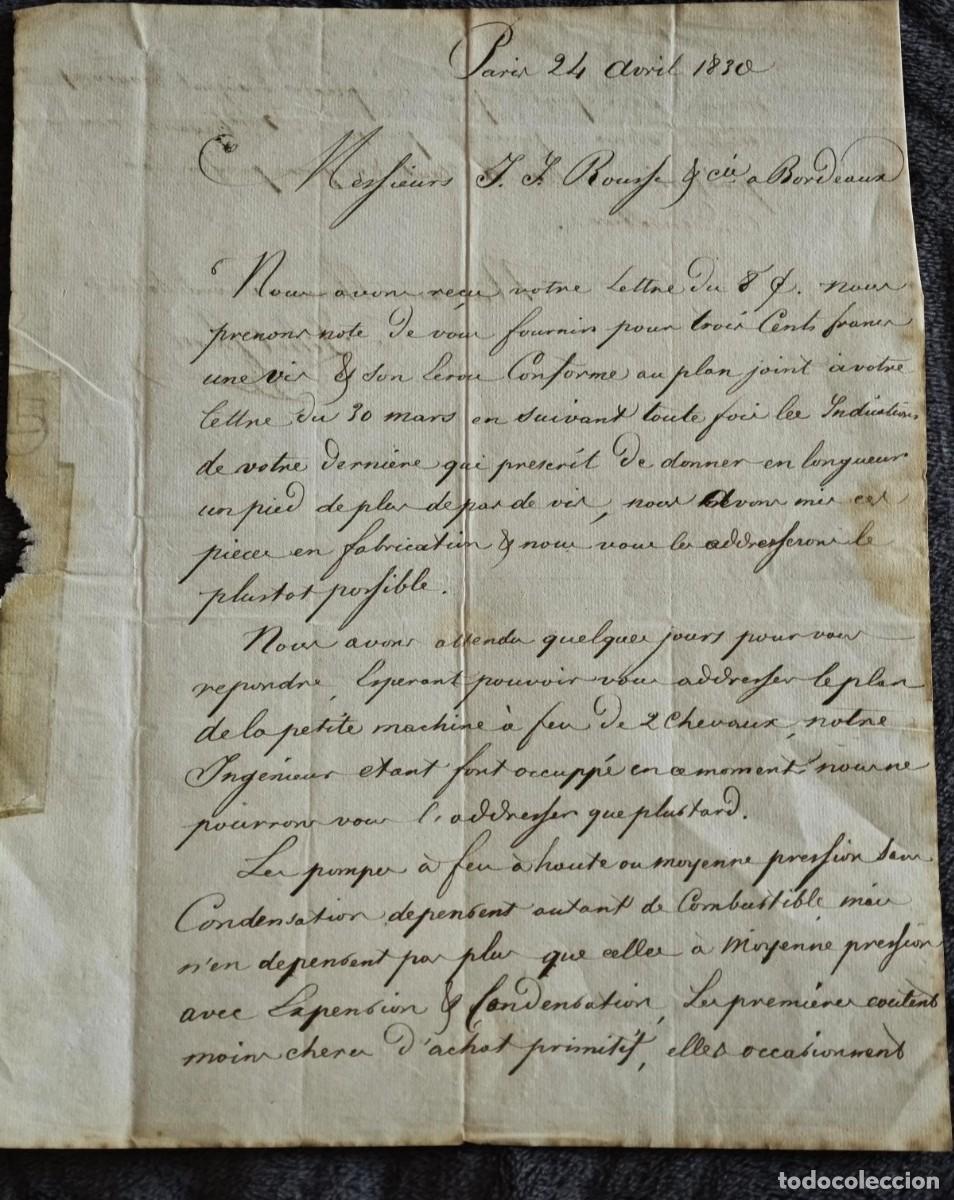 Paris 24 avril 1830
Messieurs J. J. Rousse & cie a Bordeaux
Nous avons reçu votre Lettre du 8 Ct. nous
prenons note de vous fournir pour trois Cents francs
une vis & sonEcrou Conforme au plan joint à votre
lettre du 30 mars en suivant toute fois les Indications
de votre dernière qui prescrit de donner en longueur
un pied de plus de pas de vis, nous avons mis ces
pieces en fabrication & nous vous les addresserons le
plustot possible.
Nous avons attendu quelques jours pour vous
repondre, Esperant pouvoir vous addresser le plan
de la petite machine à feu de 2 chevaux, notre
Ingénieur etant fort occuppé en ce moment nous ne
pourrons vous l'addresser que plus tard.
Les pompes à feu à haute ou moyenne pression sans
Condensation depensent autant de Combustible mais
n'en depensent pas plus que celles à Moyenne pression
avec Expension & Condensation, Les premières coutent
moins cheres d'achat primitif, elles occasionnent
todocoleccion